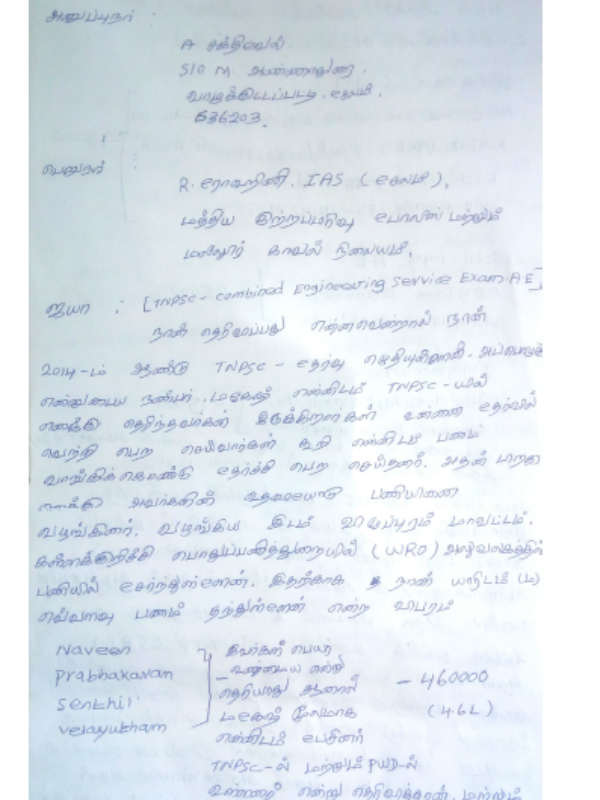 அனுப்புநர் :
A சக்திவேல்
S/O M. அண்ணாதுரை.
வாழக்கிட்டப்பட்டி. சேலம்.
636203.
பெறுநர்
R. ரோஹிணி. IAS (சேலம்).
மத்திய குற்றப்பிரிவு போலிஸ் மற்றும்
காவல் நிலையம்.
ஐயா : [TNPSC - Combined Engineering Service Exam AE]
நான் தெரிவிப்பது என்னவென்றால் நான்
2014-ம் ஆண்டு TNPSC - தேர்வு எழுதியுள்ளேன். அப்பொழுது
என்னுடைய நண்பர் மகேஷ் என்னிடம் TNPSC - யில்
எனக்கு தெரிந்தவர்கள் இருக்கிறார்கள் உன்னை தேர்வில்
வெற்றி பெற செய்வார்கள் கூறி என்னிடம் பணம்
வாங்கிக்கொண்டு தேர்ச்சி பெற செய்தனர். அதன் பிறகு
எனக்கு அவர்களின் உதவியோடு பணியினை
வழங்கினர். வழங்கிய இடம் விழுப்புரம் மாவட்டம்.
கள்ளக்குறிச்சி பொதுப்பணித்துறையில் (WRO) அலுவலகத்தில்
பணியில் சேர்ந்துள்ளேன். இதற்காக நான் யாரிடம் (ம)
எவ்வளவு பணம் தந்துள்ளேன் என்ற விபரம்
Naveen
Prabhakaran
Senthil
Velayutham
இவர்கள் பெயர்
உண்மைய என்று
தெரியாது ஆனால்
மகேஷ் மூலமாக
என்னிடம் பேசினர்
- 460000
(4.6L)
TNPSC-ல் மற்றும் PWD-ல்
என்று மற்றும்